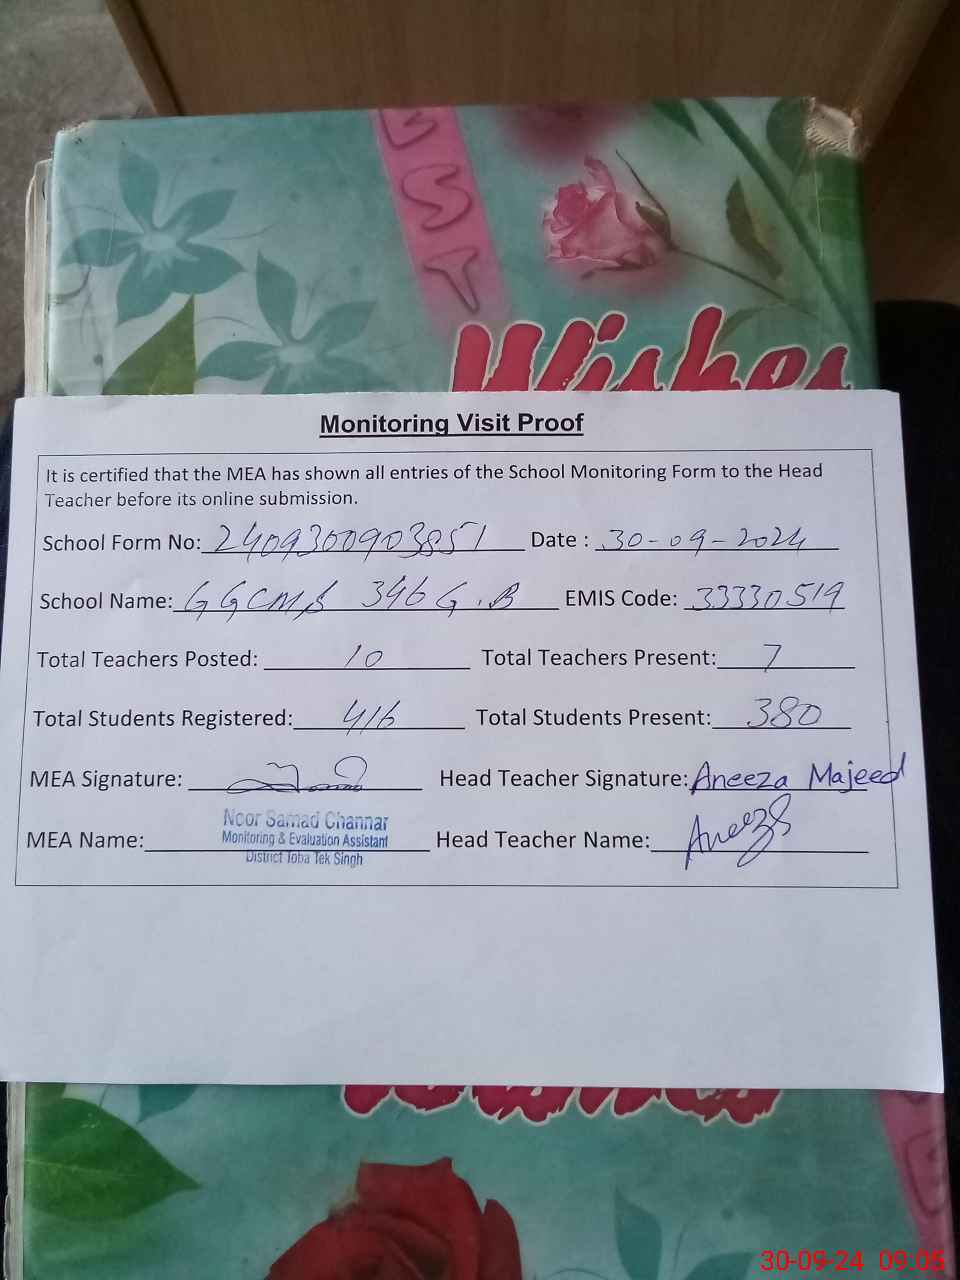 BEST
Wishes
Monitoring Visit Proof
It is certified that the MEA has shown all entries of the School Monitoring Form to the Head
Teacher before its online submission.
School Form No: 2409300903851 Date : 30-09-2024
School Name: GGCMS 346 G.B EMIS Code: 33330519
Total Teachers Posted: 10 Total Teachers Present: 7
Total Students Registered: 416 Total Students Present: 380
MEA Signature: Head Teacher Signature: Aneeza Majeed
MEA Name: Noor Samad Channar Head Teacher Name: Aneeza
Monitoring & Evaluation Assistant
District Toba Tek Singh
30-09-24 09:05